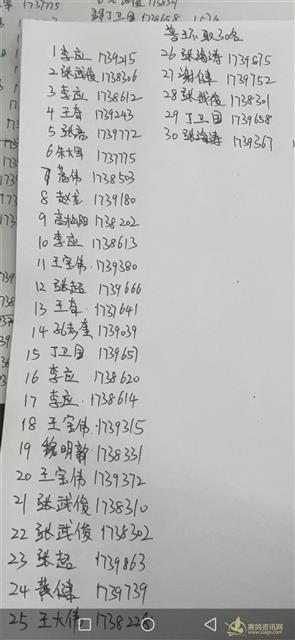 普环取30名
1 李应 1739215
2 张武俊 1738306
3 李应 1738612
4 王奋 1739243
5 张亮 1739772
6 1737775
7 1738503
8 赵龙 1739180
9 1738202
10 李应 1738613
11 王宝伟 1739380
12 张超 1739666
13 王奋 1737641
14 孔志奎 1739039
15 丁卫国 1739657
16 李应 1738620
17 李应 1738614
18 王宝伟 1739315
19 魏明新 1738331
20 王宝伟 1739372
21 张武俊 1738310
22 张武俊 1738302
23 张超 1739863
24 黄健 1739739
25 王大伟 1738226
26 张海涛 1739875
27 谢健 1739752
28 张武俊 1738301
29 丁卫国 1739658
30 张海涛 1739367
赛鸽资讯网
www.saige.com